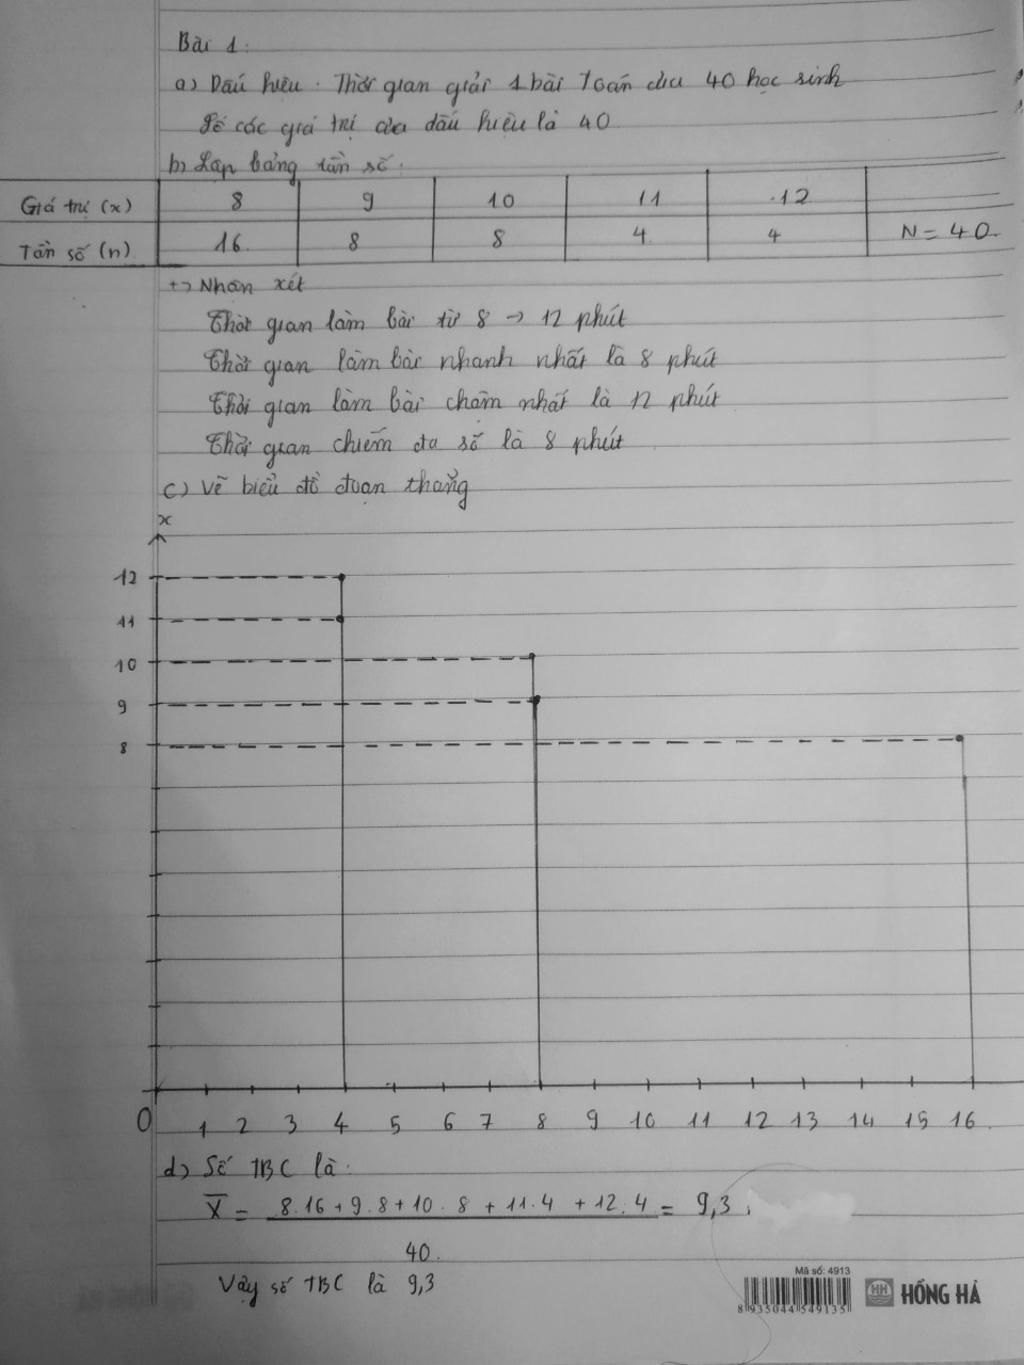 Bài 1:
a) Dấu hiệu: Thời gian giải 1 bài Toán của 40 học sinh
Số các giá trị của dấu hiệu là 40
b) Lập bảng tần số:
Giá trị (x) 8 9 10 11 12
Tần số (n) 16 8 8 4 4 N = 40
+) Nhận xét
Thời gian làm bài từ 8 → 12 phút
Thời gian làm bài nhanh nhất là 8 phút
Thời gian làm bài chậm nhất là 12 phút
Thời gian chiếm đa số là 8 phút
c) Vẽ biểu đồ đoạn thẳng
x
12
11
10
9
8
0 1 2 3 4 5 6 7 8 9 10 11 12 13 14 15 16
d) Số TBC là:
X̅ = 8.16 + 9.8 + 10.8 + 11.4 + 12.4 = 9,3
40
Vậy số TBC là 9,3
Mã số: 4913
8 935044 549135
HH HỒNG HÀ